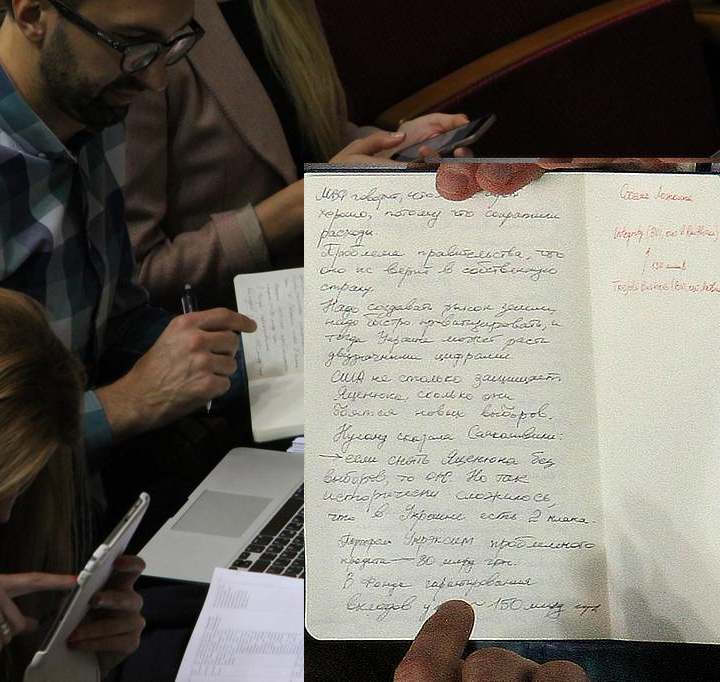 МВФ говорит, что
хорошо, потому что сократили
расходы.
Проблема правительства, что
оно не верит в собственную
страну.
Надо создавать рынок земли,
надо быстро приватизировать, и
тогда Украина может расти
двузначными цифрами.
США не столько защищают
Яценюка, сколько они
боятся новых выборов.
Нуланд сказала Саакашвили:
→ если снять Яценюка без
выборов, то ОК. Но так
исторически сложилось,
что в Украине есть 2 клана.
Портфель Укрэксим проблемного
кредита — 30 млрд грн.
В Фонде гарантирования
вкладов ~ 150 млрд грн
Integrity (BVI,